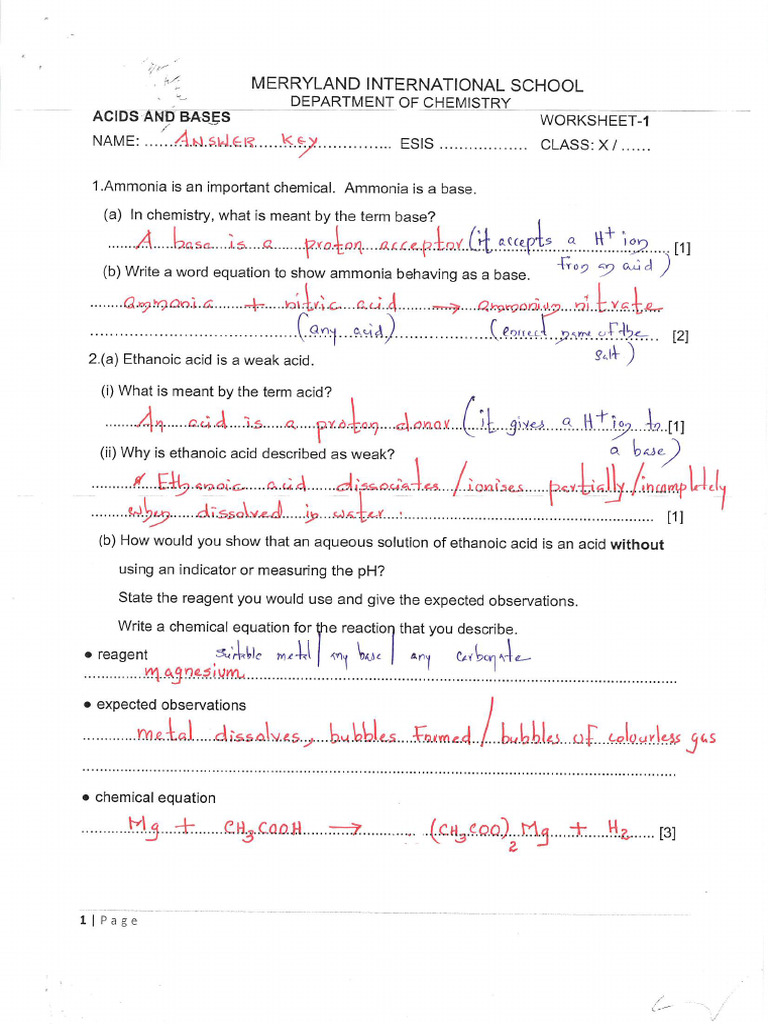 MERRYLAND INTERNATIONAL SCHOOL
DEPARTMENT OF CHEMISTRY
ACIDS AND BASES WORKSHEET-1
NAME: ......ANSWER KEY.............. ESIS .................. CLASS: X / ......
1.Ammonia is an important chemical. Ammonia is a base.
(a) In chemistry, what is meant by the term base?
A base is a proton acceptor (it accepts a H+ ion [1]
from an acid)
(b) Write a word equation to show ammonia behaving as a base.
ammonia + nitric acid → ammonium nitrate
(any acid) (correct name of the [2]
salt)
2.(a) Ethanoic acid is a weak acid.
(i) What is meant by the term acid?
An acid is a proton donor (it gives a H+ ion to [1]
a base)
(ii) Why is ethanoic acid described as weak?
Ethanoic acid dissociates / ionises partially / incompletely
when dissolved in water. [1]
(b) How would you show that an aqueous solution of ethanoic acid is an acid without
using an indicator or measuring the pH?
State the reagent you would use and give the expected observations.
Write a chemical equation for the reaction that you describe.
● reagent suitable metal / any base / any carbonate
magnesium
● expected observations
metal dissolves, bubbles formed / bubbles of colourless gas
● chemical equation
Mg + CH3COOH → (CH3COO)2 Mg + H2 [3]
1 | Page